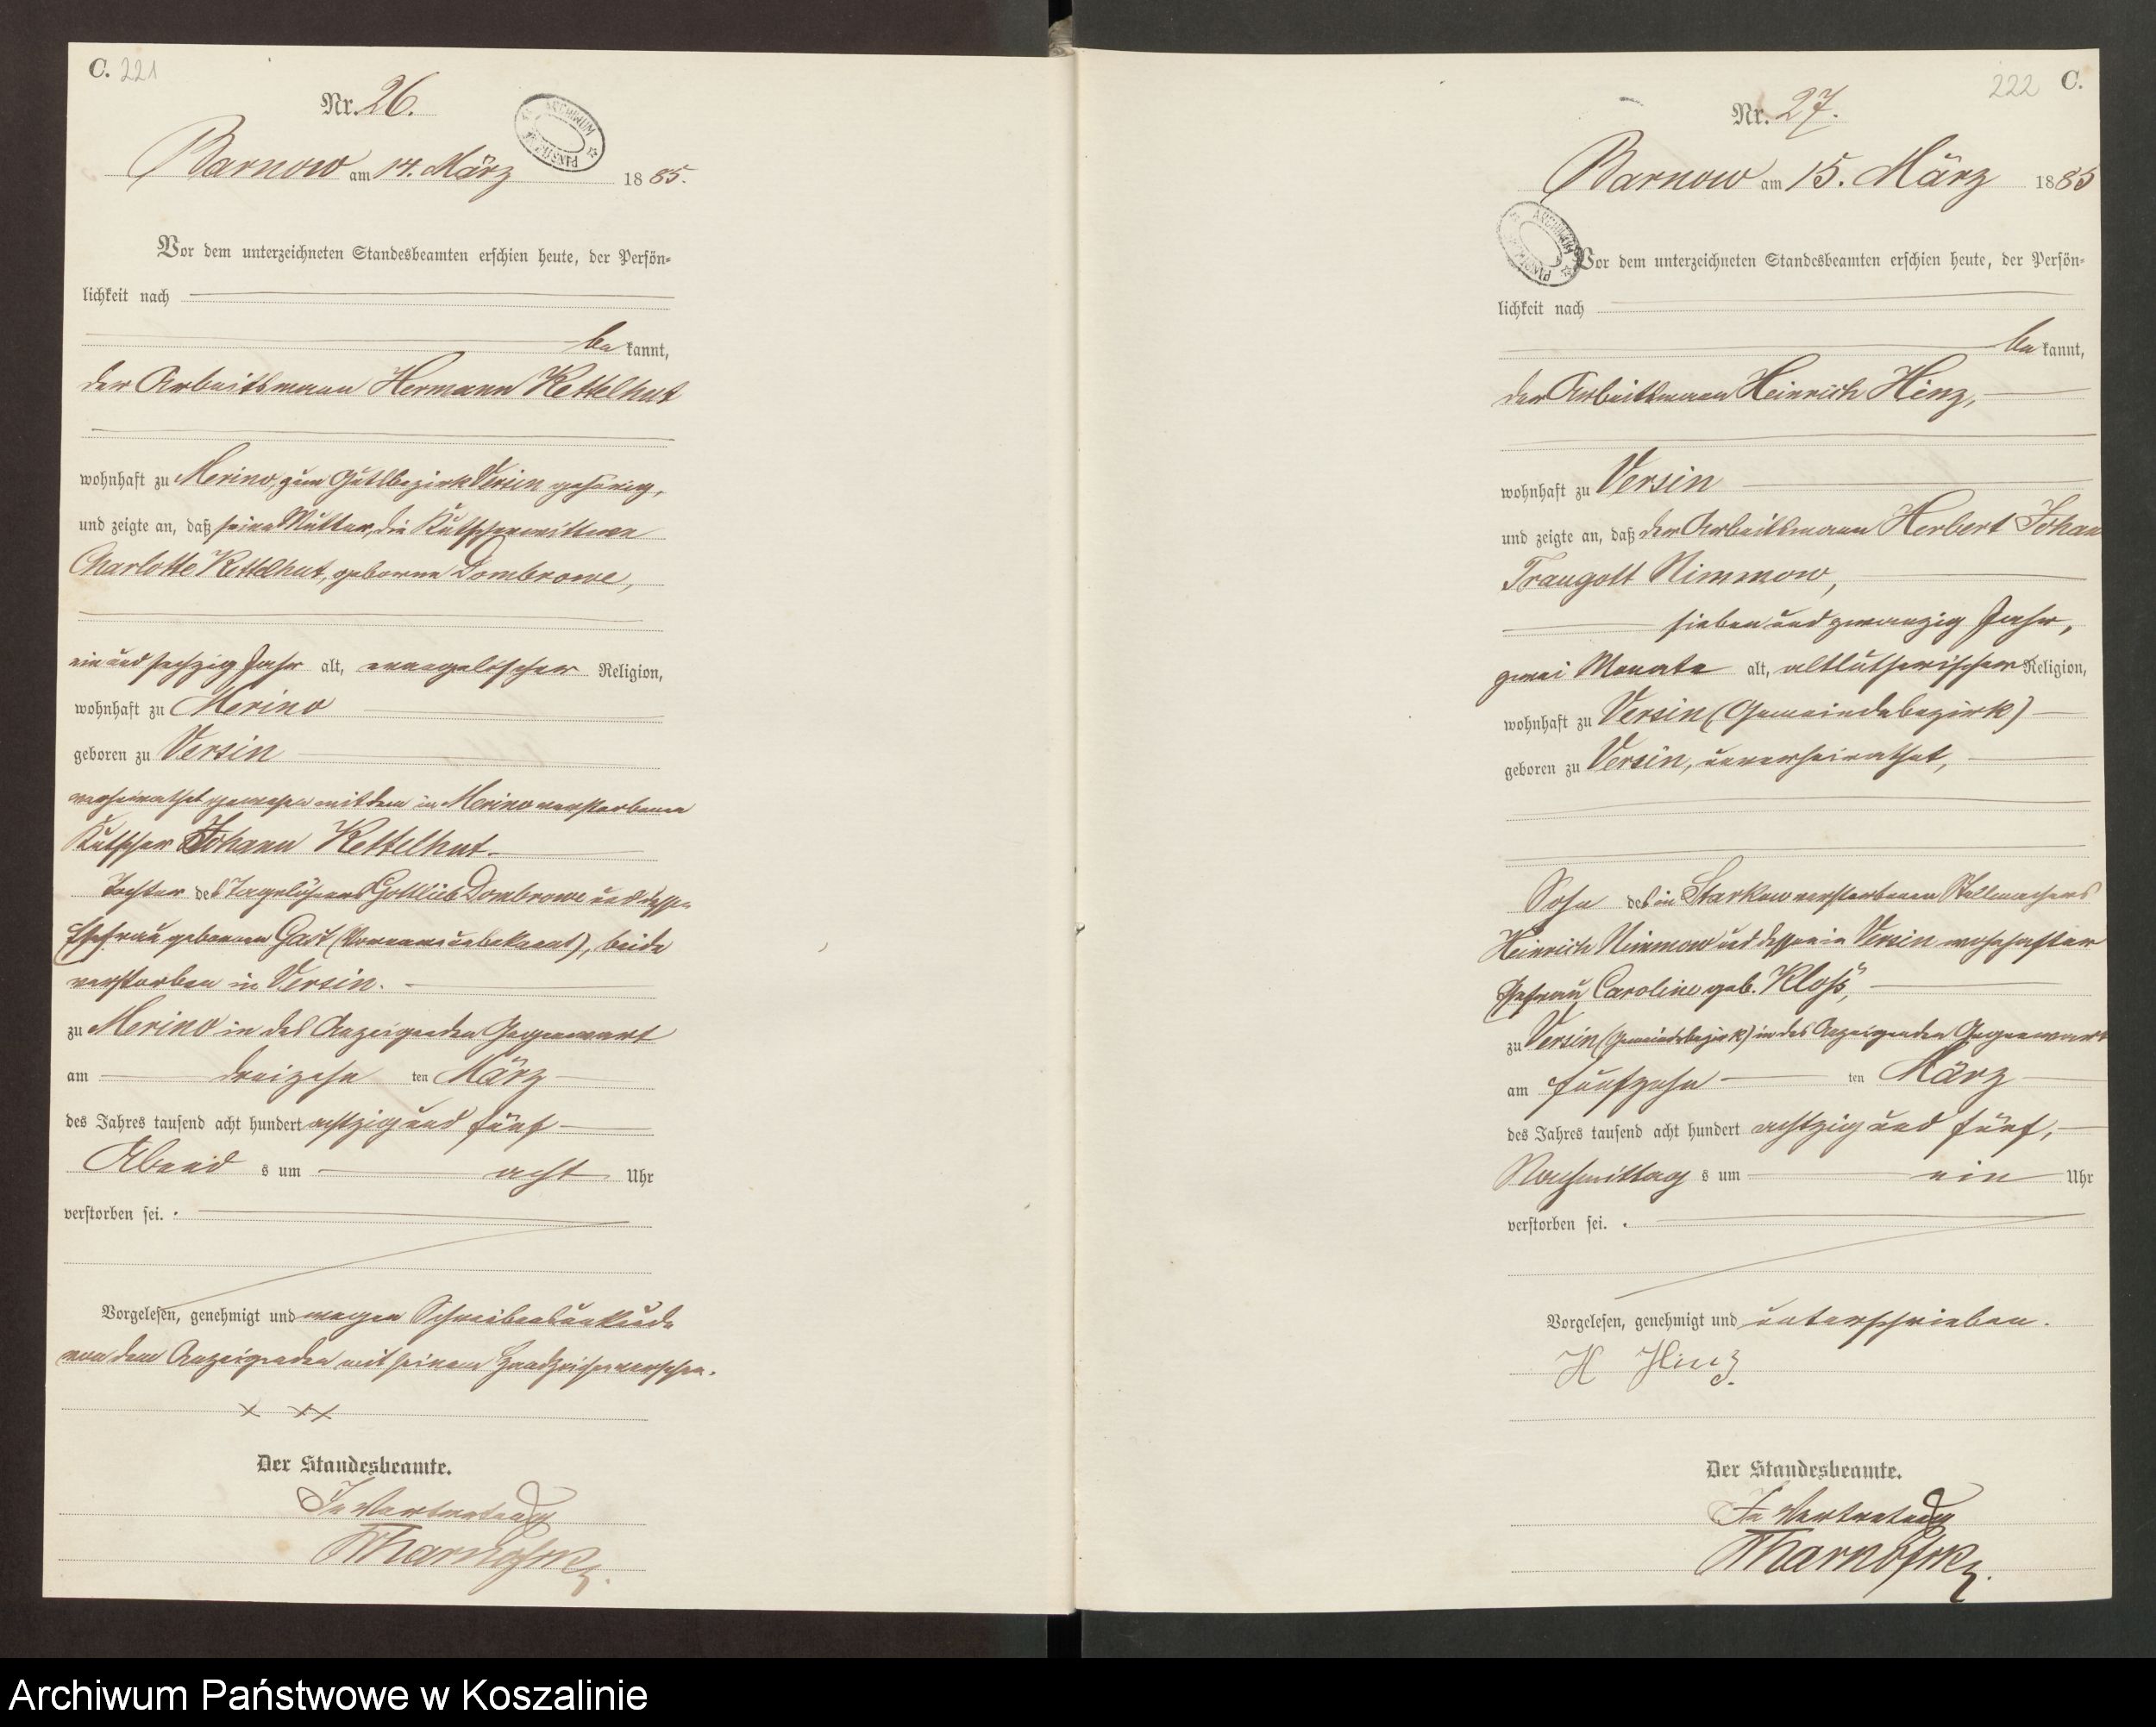 C. 221
Nr. 26.
ARCHIWUM PAŃSTW
Barnow am 14. März 1885.
Vor dem unterzeichneten Standesbeamten erschien heute, der Persön-
lichkeit nach
bekannt,
der Arbeitsmann Hermann Kettelhut
wohnhaft zu Merino, zum Gutsbezirk Versin gehörig,
und zeigte an, daß seine Mutter, die Kutscherwittwe
Charlotte Kettelhut, geborene Dombrowe,
ein und sechzig Jahr alt, evangelischer Religion,
wohnhaft zu Merino
geboren zu Versin
verheirathet gewesen mit dem in Merino verstorbenen
Kutscher Johann Kettelhut.
Tochter des Tagelöhners Gottlieb Dombrowe und dessen
Ehefrau geborenen Gast (Vorname unbekannt), beide
verstorben in Versin.
zu Merino in des Anzeigenden Gegenwart
am dreizehnten März
des Jahres tausend acht hundert achtzig und fünf
Abends um acht Uhr
verstorben sei.
Vorgelesen, genehmigt und wegen Schreibensunkunde
von dem Anzeigenden mit seinem Handzeichen versehen.
x xx
Der Standesbeamte.
In Vertretung
222 C.
Nr. 27.
Barnow am 15. März 1885
ARCHIWUM PAŃSTW
Vor dem unterzeichneten Standesbeamten erschien heute, der Persön-
lichkeit nach
bekannt,
der Arbeitsmann Heinrich Hinz,
wohnhaft zu Versin
und zeigte an, daß der Arbeitsmann Herbert Johan
Traugott Nimmow,
sieben und zwanzig Jahr,
zwei Monate alt, altlutherischer Religion,
wohnhaft zu Versin (Gemeindebezirk)
geboren zu Versin, unverheirathet,
Sohn des in Starkow verstorbenen Stellmachers
Heinrich Nimmow und dessen in Versin wohnhafter
Ehefrau Caroline geb. Kloß,
zu Versin (Gemeindebezirk) in des Anzeigenden Gegenwart
am fünfzehnten März
des Jahres tausend acht hundert achtzig und fünf,
Nachmittags um ein Uhr
verstorben sei.
Vorgelesen, genehmigt und unterschrieben.
H Hinz.
Der Standesbeamte.
In Vertretung
Archiwum Państwowe w Koszalinie